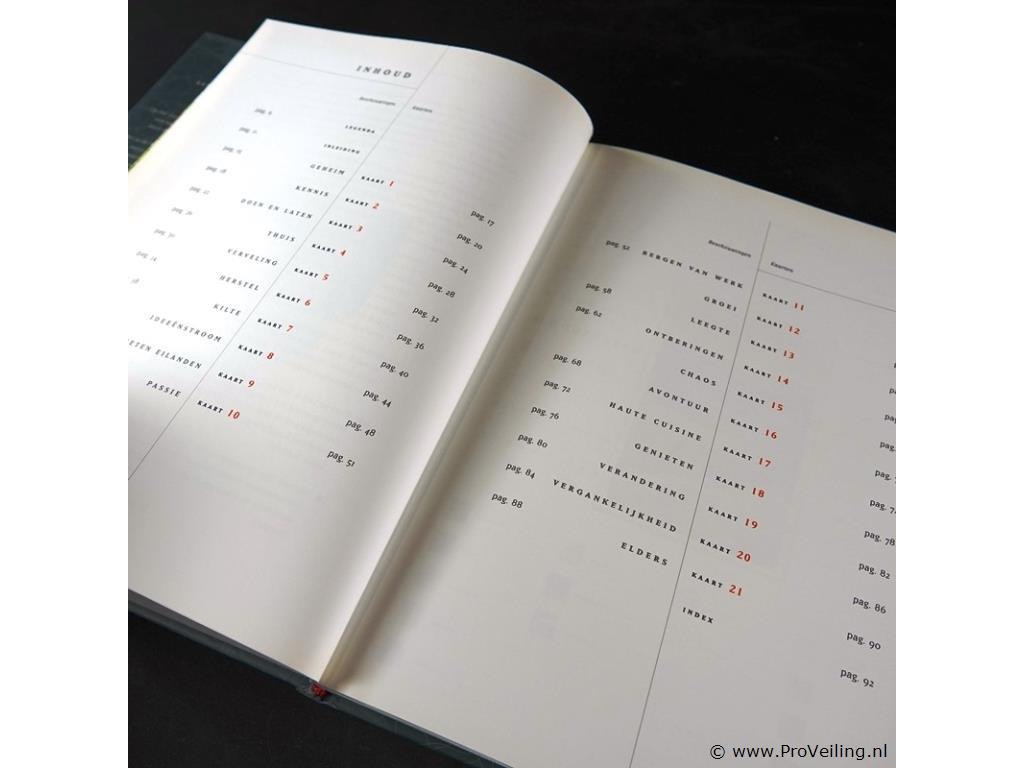 INHOUD
Beschrijvingen Kaarten
pag. 6 LEGENDA
pag. 11 INLEIDING
pag. 15 GEHEIM KAART 1 pag. 17
pag. 18 KENNIS KAART 2 pag. 20
pag. 22 DOEN EN LATEN KAART 3 pag. 24
THUIS KAART 4 pag. 28
pag. 30 VERVELING KAART 5 pag. 32
HERSTEL KAART 6 pag. 36
KILTE KAART 7 pag. 40
IDEEËNSTROOM KAART 8 pag. 44
ETEN EILANDEN KAART 9 pag. 48
PASSIE KAART 10 pag. 51
Beschrijvingen Kaarten
pag. 52 BERGEN VAN WERK KAART 11
GROEI KAART 12
pag. 58 LEEGTE KAART 13
pag. 62 ONTBERINGEN KAART 14
CHAOS KAART 15
pag. 68 AVONTUUR KAART 16
pag. 72 HAUTE CUISINE KAART 17
pag. 76 GENIETEN KAART 18 pag. 78
pag. 80 VERANDERING KAART 19 pag. 82
pag. 84 VERGANKELIJKHEID KAART 20 pag. 86
pag. 88 ELDERS KAART 21 pag. 90
INDEX pag. 92
© www.ProVeiling.nl